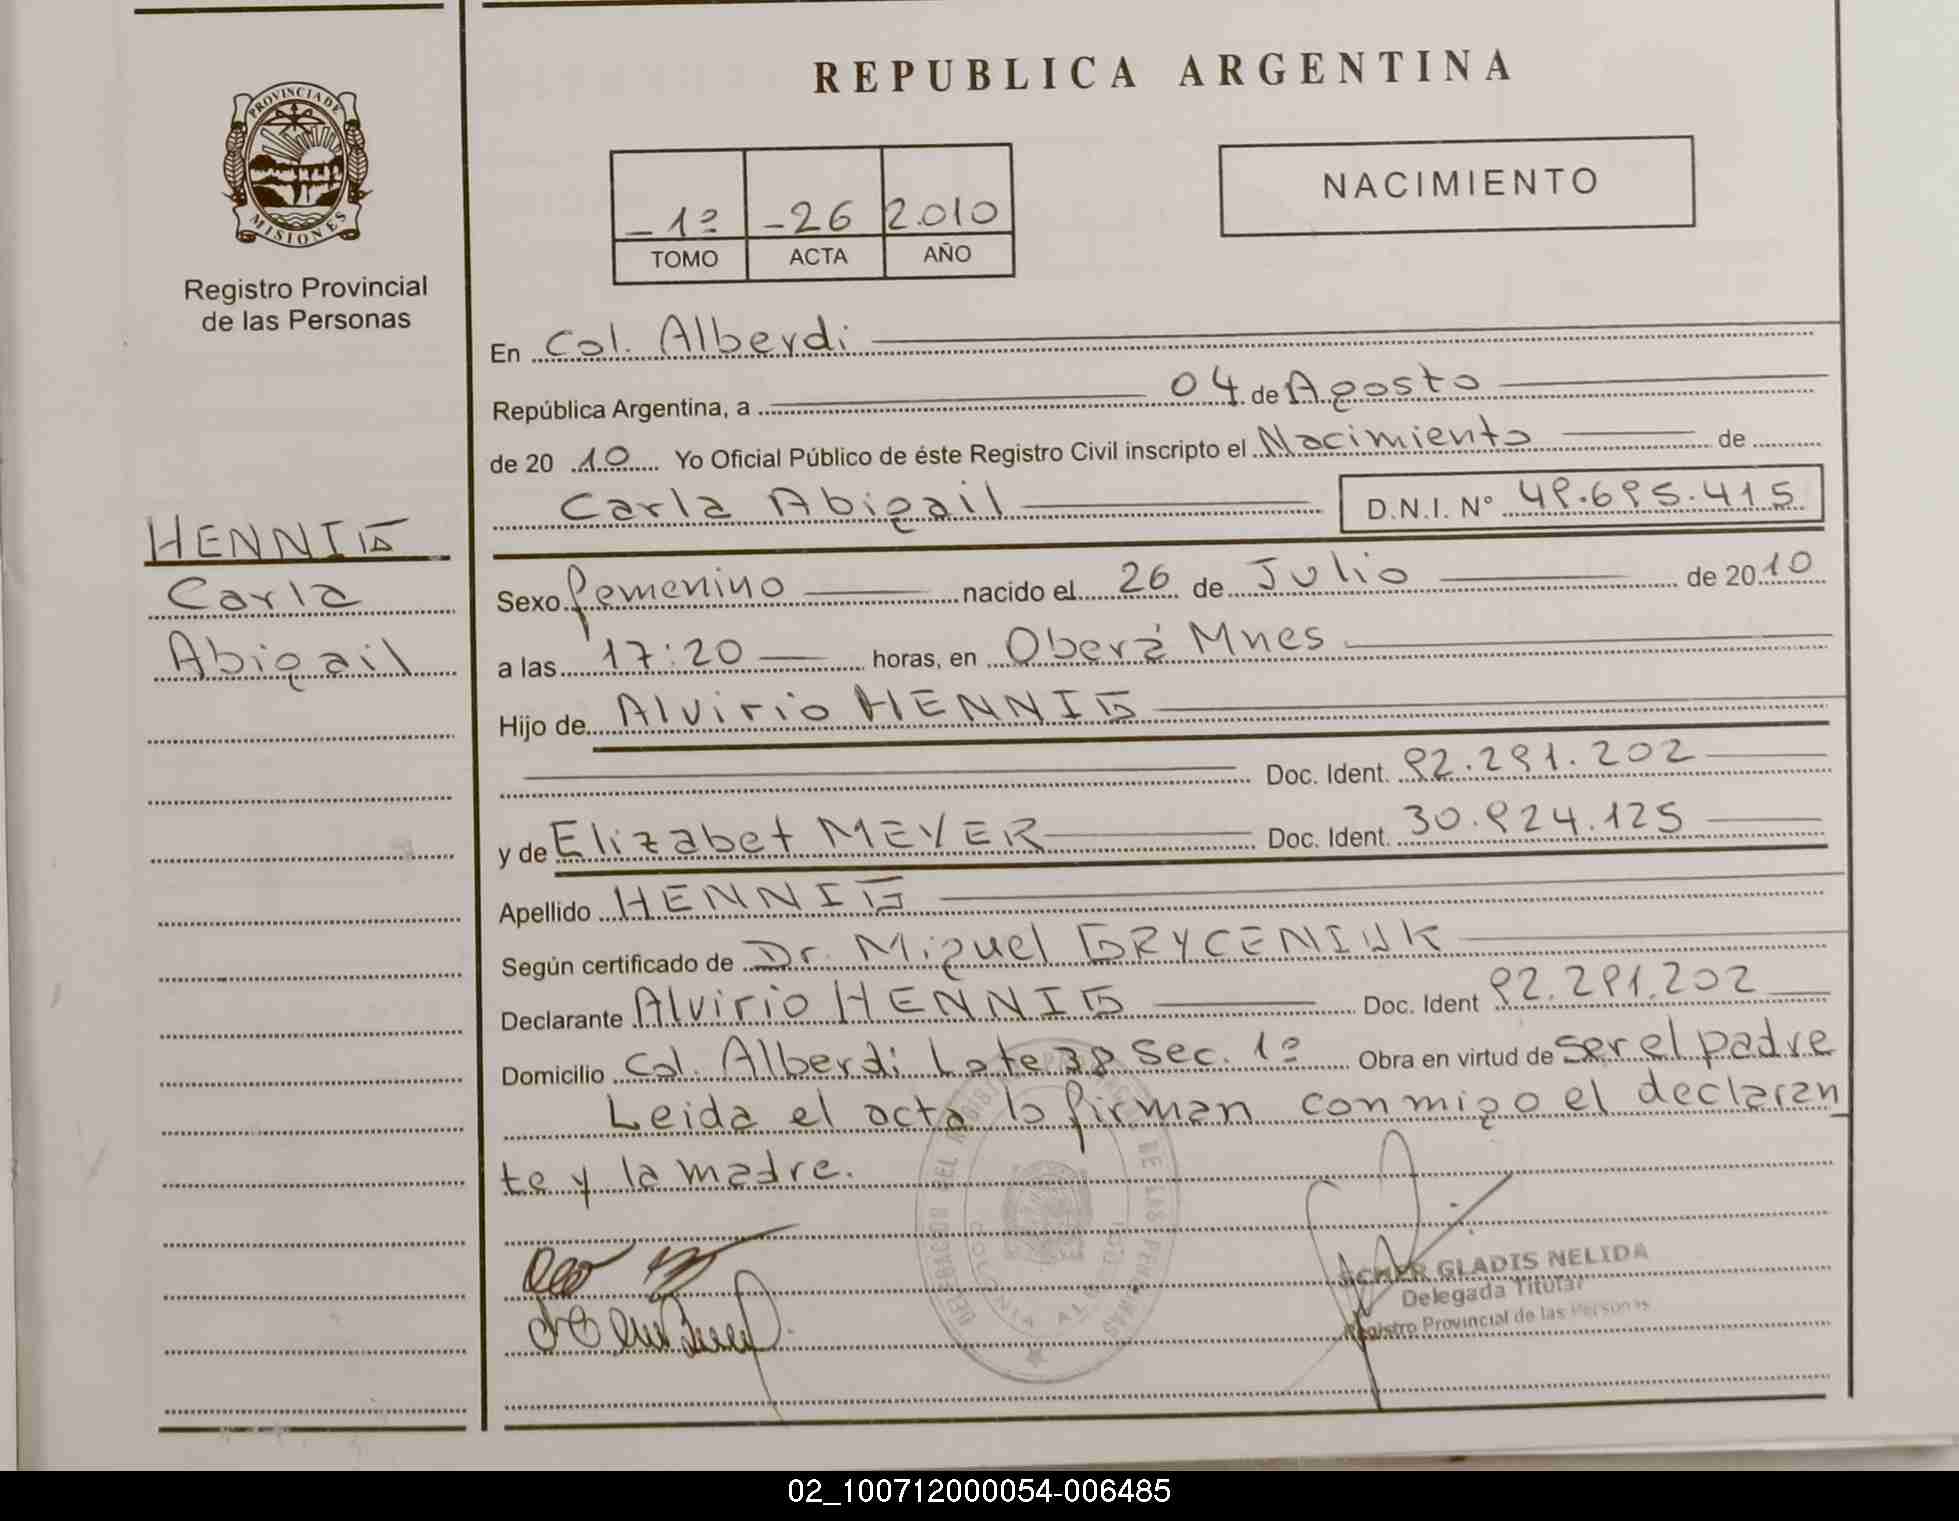 REPUBLICA ARGENTINA
PROVINCIA DE
MISIONES
Registro Provincial
de las Personas
HENNIG
Carla
Abigail
- 1º - 26 2.010
TOMO ACTA AÑO
NACIMIENTO
En Col. Alberdi
República Argentina, a 04 de Agosto
de 20 10 Yo Oficial Público de éste Registro Civil inscripto el Nacimiento de
Carla Abigail D.N.I. Nº 49.695.415
Sexo femenino nacido el 26 de Julio de 2010
a las 17:20 horas, en Oberá Mnes
Hijo de Alvirio HENNIG
Doc. Ident. 92.291.202
y de Elizabet MEYER Doc. Ident. 30.924.125
Apellido HENNIG
Según certificado de Dr. Miguel
Declarante Alvirio HENNIG Doc. Ident 92.291.202
Domicilio Col. Alberdi Lote 38 Sec. 1º Obra en virtud de ser el padre
Leida el acta lo firman conmigo el declaran
te y la madre.
GLADIS NELIDA
Delegada Titular
Registro Provincial de las Personas
DE LAS PERSONAS
02_100712000054-006485